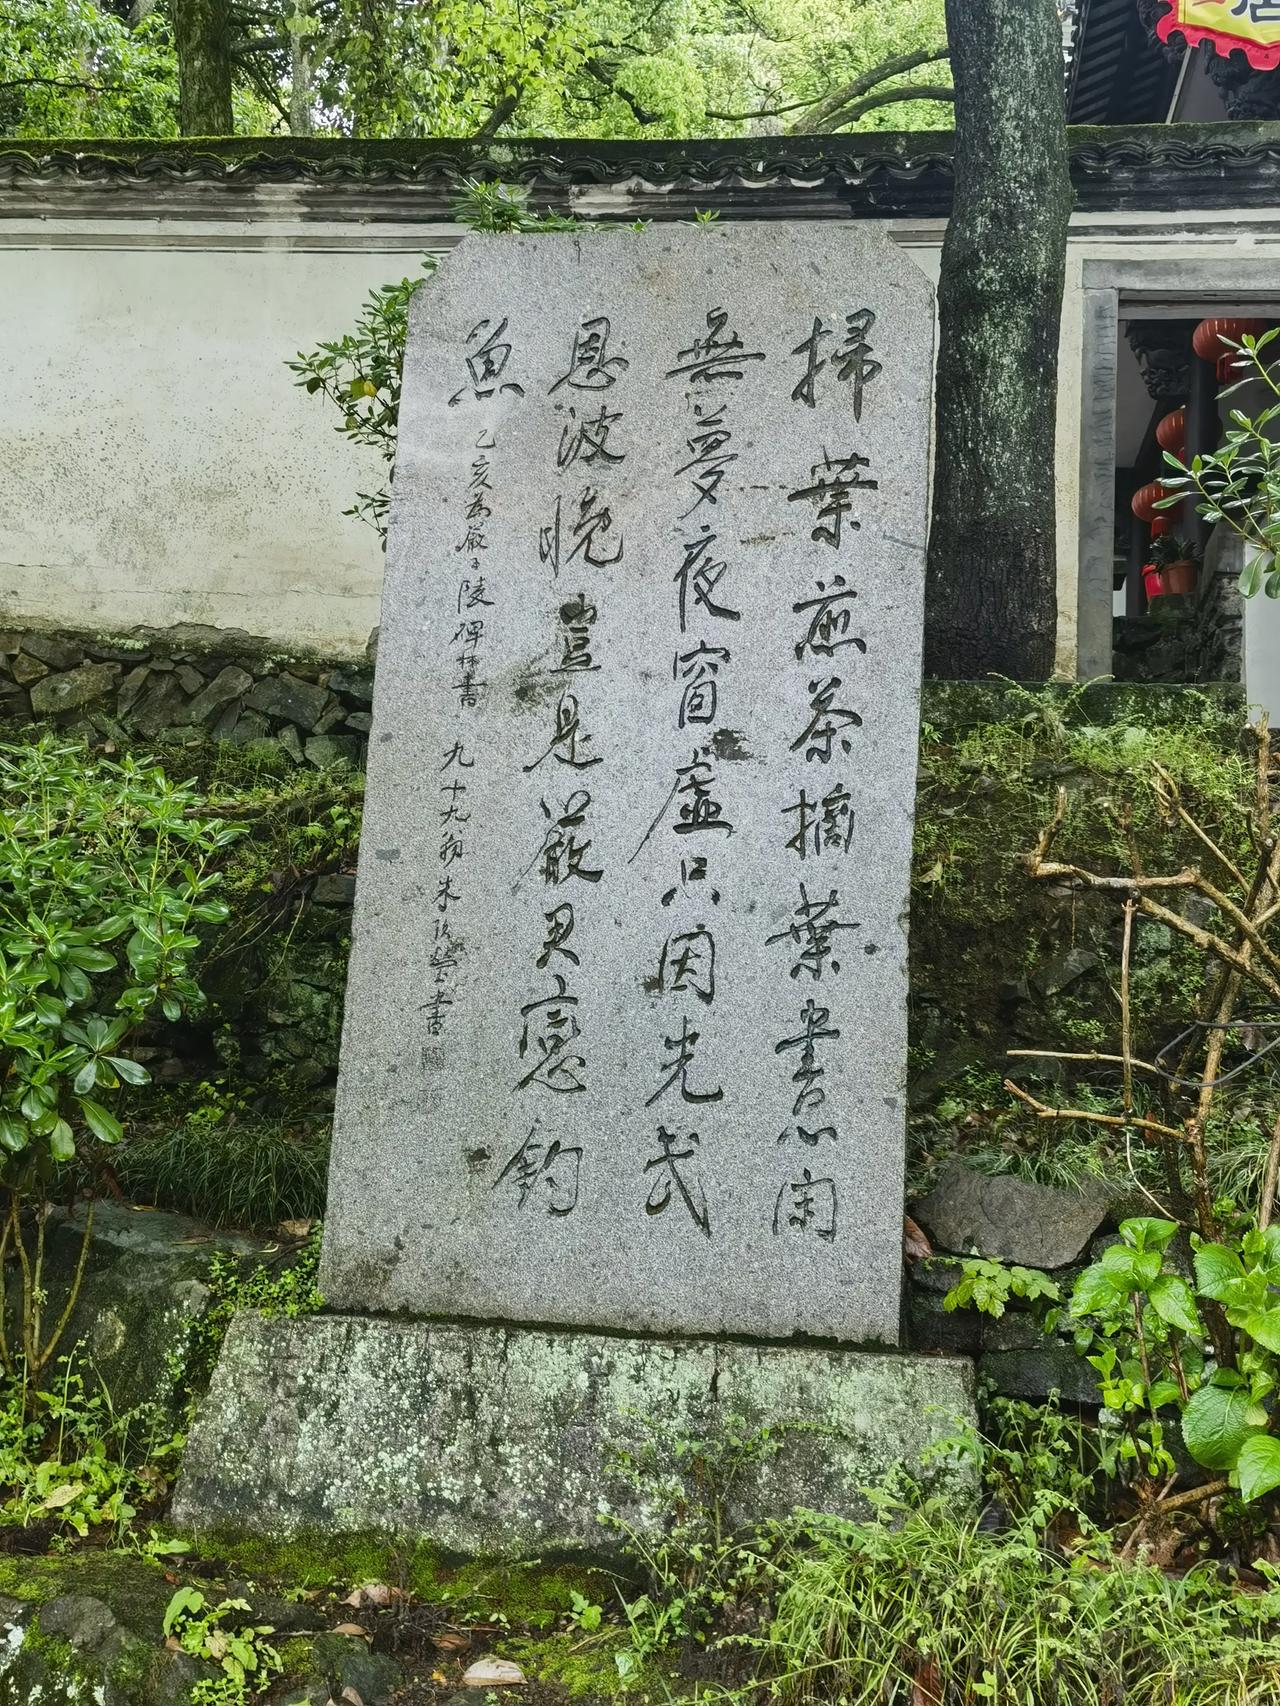 掃葉煎茶摘葉書心閑
無夢夜窗虛只因光武
恩波晚豈是嚴君戀釣
魚
乙亥為嚴子陵碑林書 九十九翁朱玖瑩書